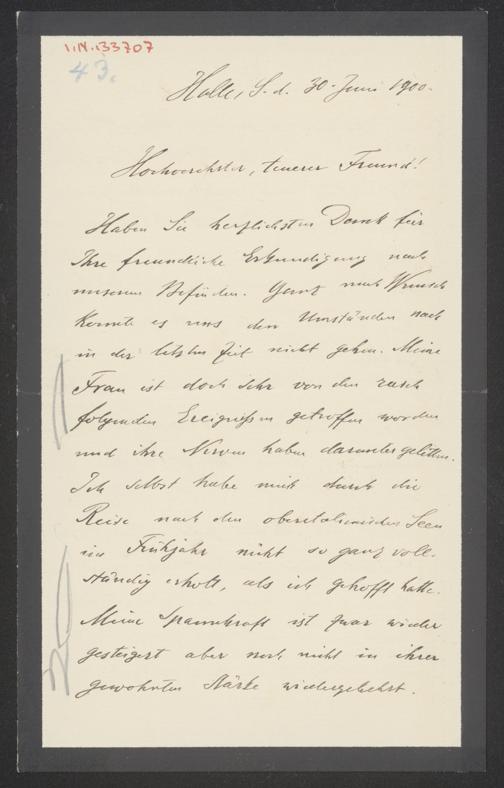 I.N. 133707
43.
Halle, S. d. 30. Juni 1900.
Hochverehrter, teuerer Freund!
Haben Sie herzlichsten Dank für
Ihre freundliche Erkundigung nach
unserem Befinden. Ganz nach Wunsch
konnte es uns den Umständen nach
in der letzten Zeit nicht gehen. Meine
Frau ist doch sehr von den rasch
folgenden Ereignissen getroffen worden
und ihre Nerven haben darunter gelitten.
Ich selbst habe mich durch die
Reise nach den oberitalienischen Seen
im Frühjahr nicht so ganz voll-
ständig erholt, als ich gehofft hatte.
Meine Spannkraft ist zwar wieder
gesteigert aber noch nicht in ihrer
gewohnten Stärke wiedergekehrt.